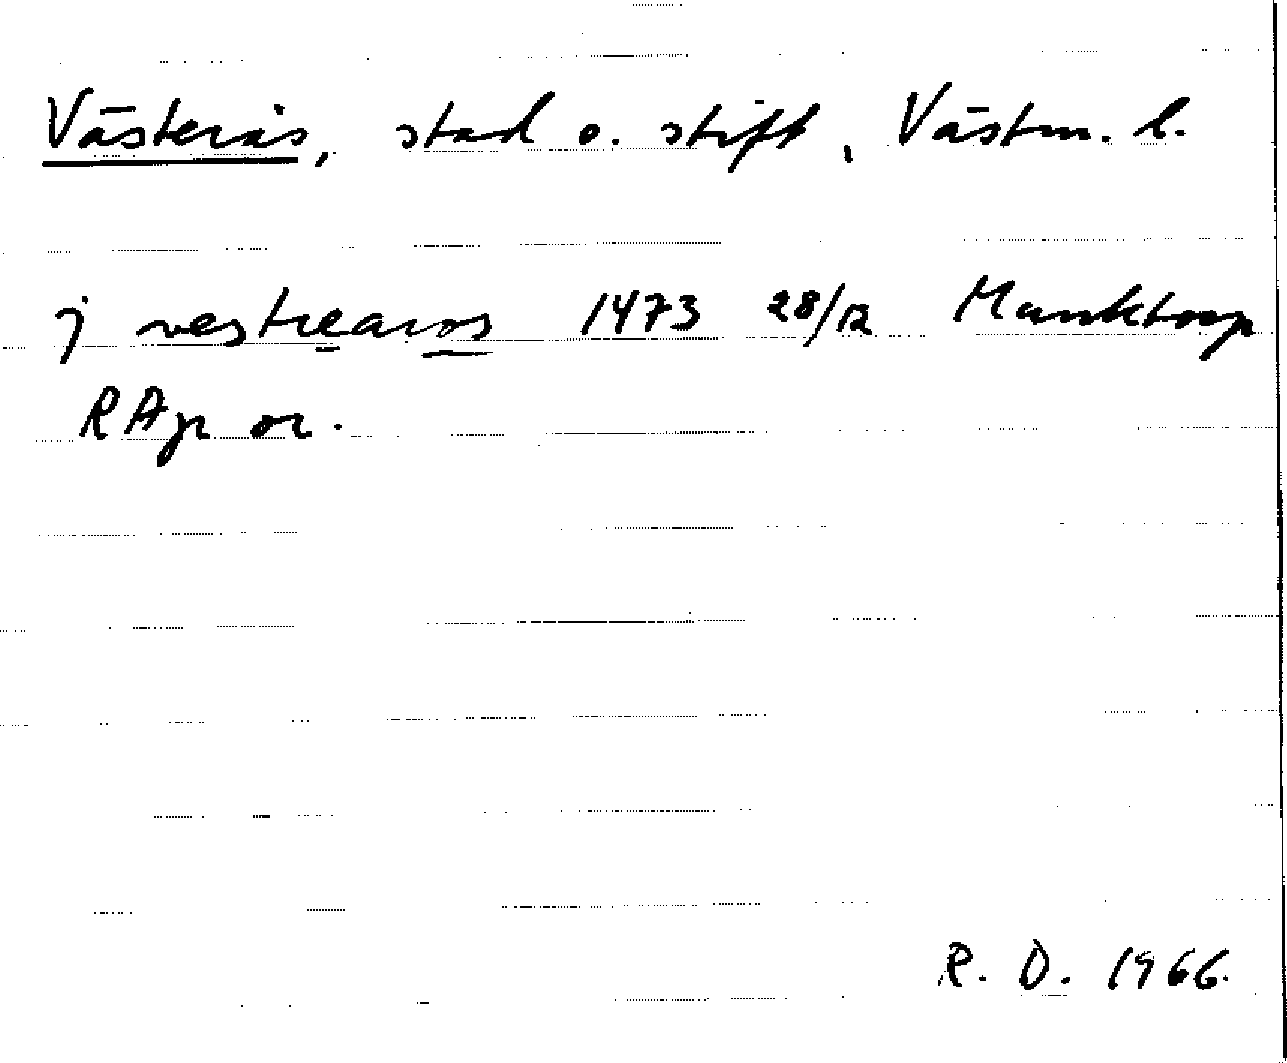 Västerås, stad o. stift, Västm. l.
j vestrearos 1473 28/12 Munktorp
RAp or.
R. D. 1966.